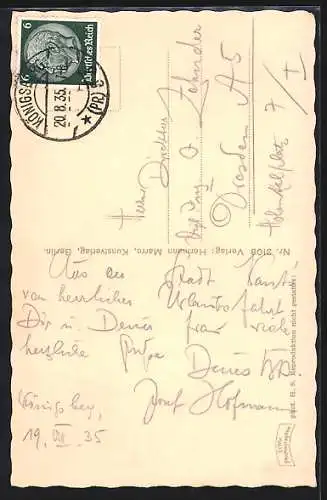 6 Deutsches Reich 6
KÖNIGSBERG (PR) 5
20.8.35
Herrn Direktor
Dipl. Ing. O. Zehnder
Dresden A 5
7/I
Nr. 3108 Verlag: Hermann Marro, Kunstverlag, Berlin.
phot. H. S. Reproduktion nicht gestattet!
Aus der Stadt Kants
von herrlicher Urlaubsfahrt
Dir u. Deiner Frau viele
herzliche Grüße
Deines
Josf Hofmann
Königsberg,
19. VIII. 35